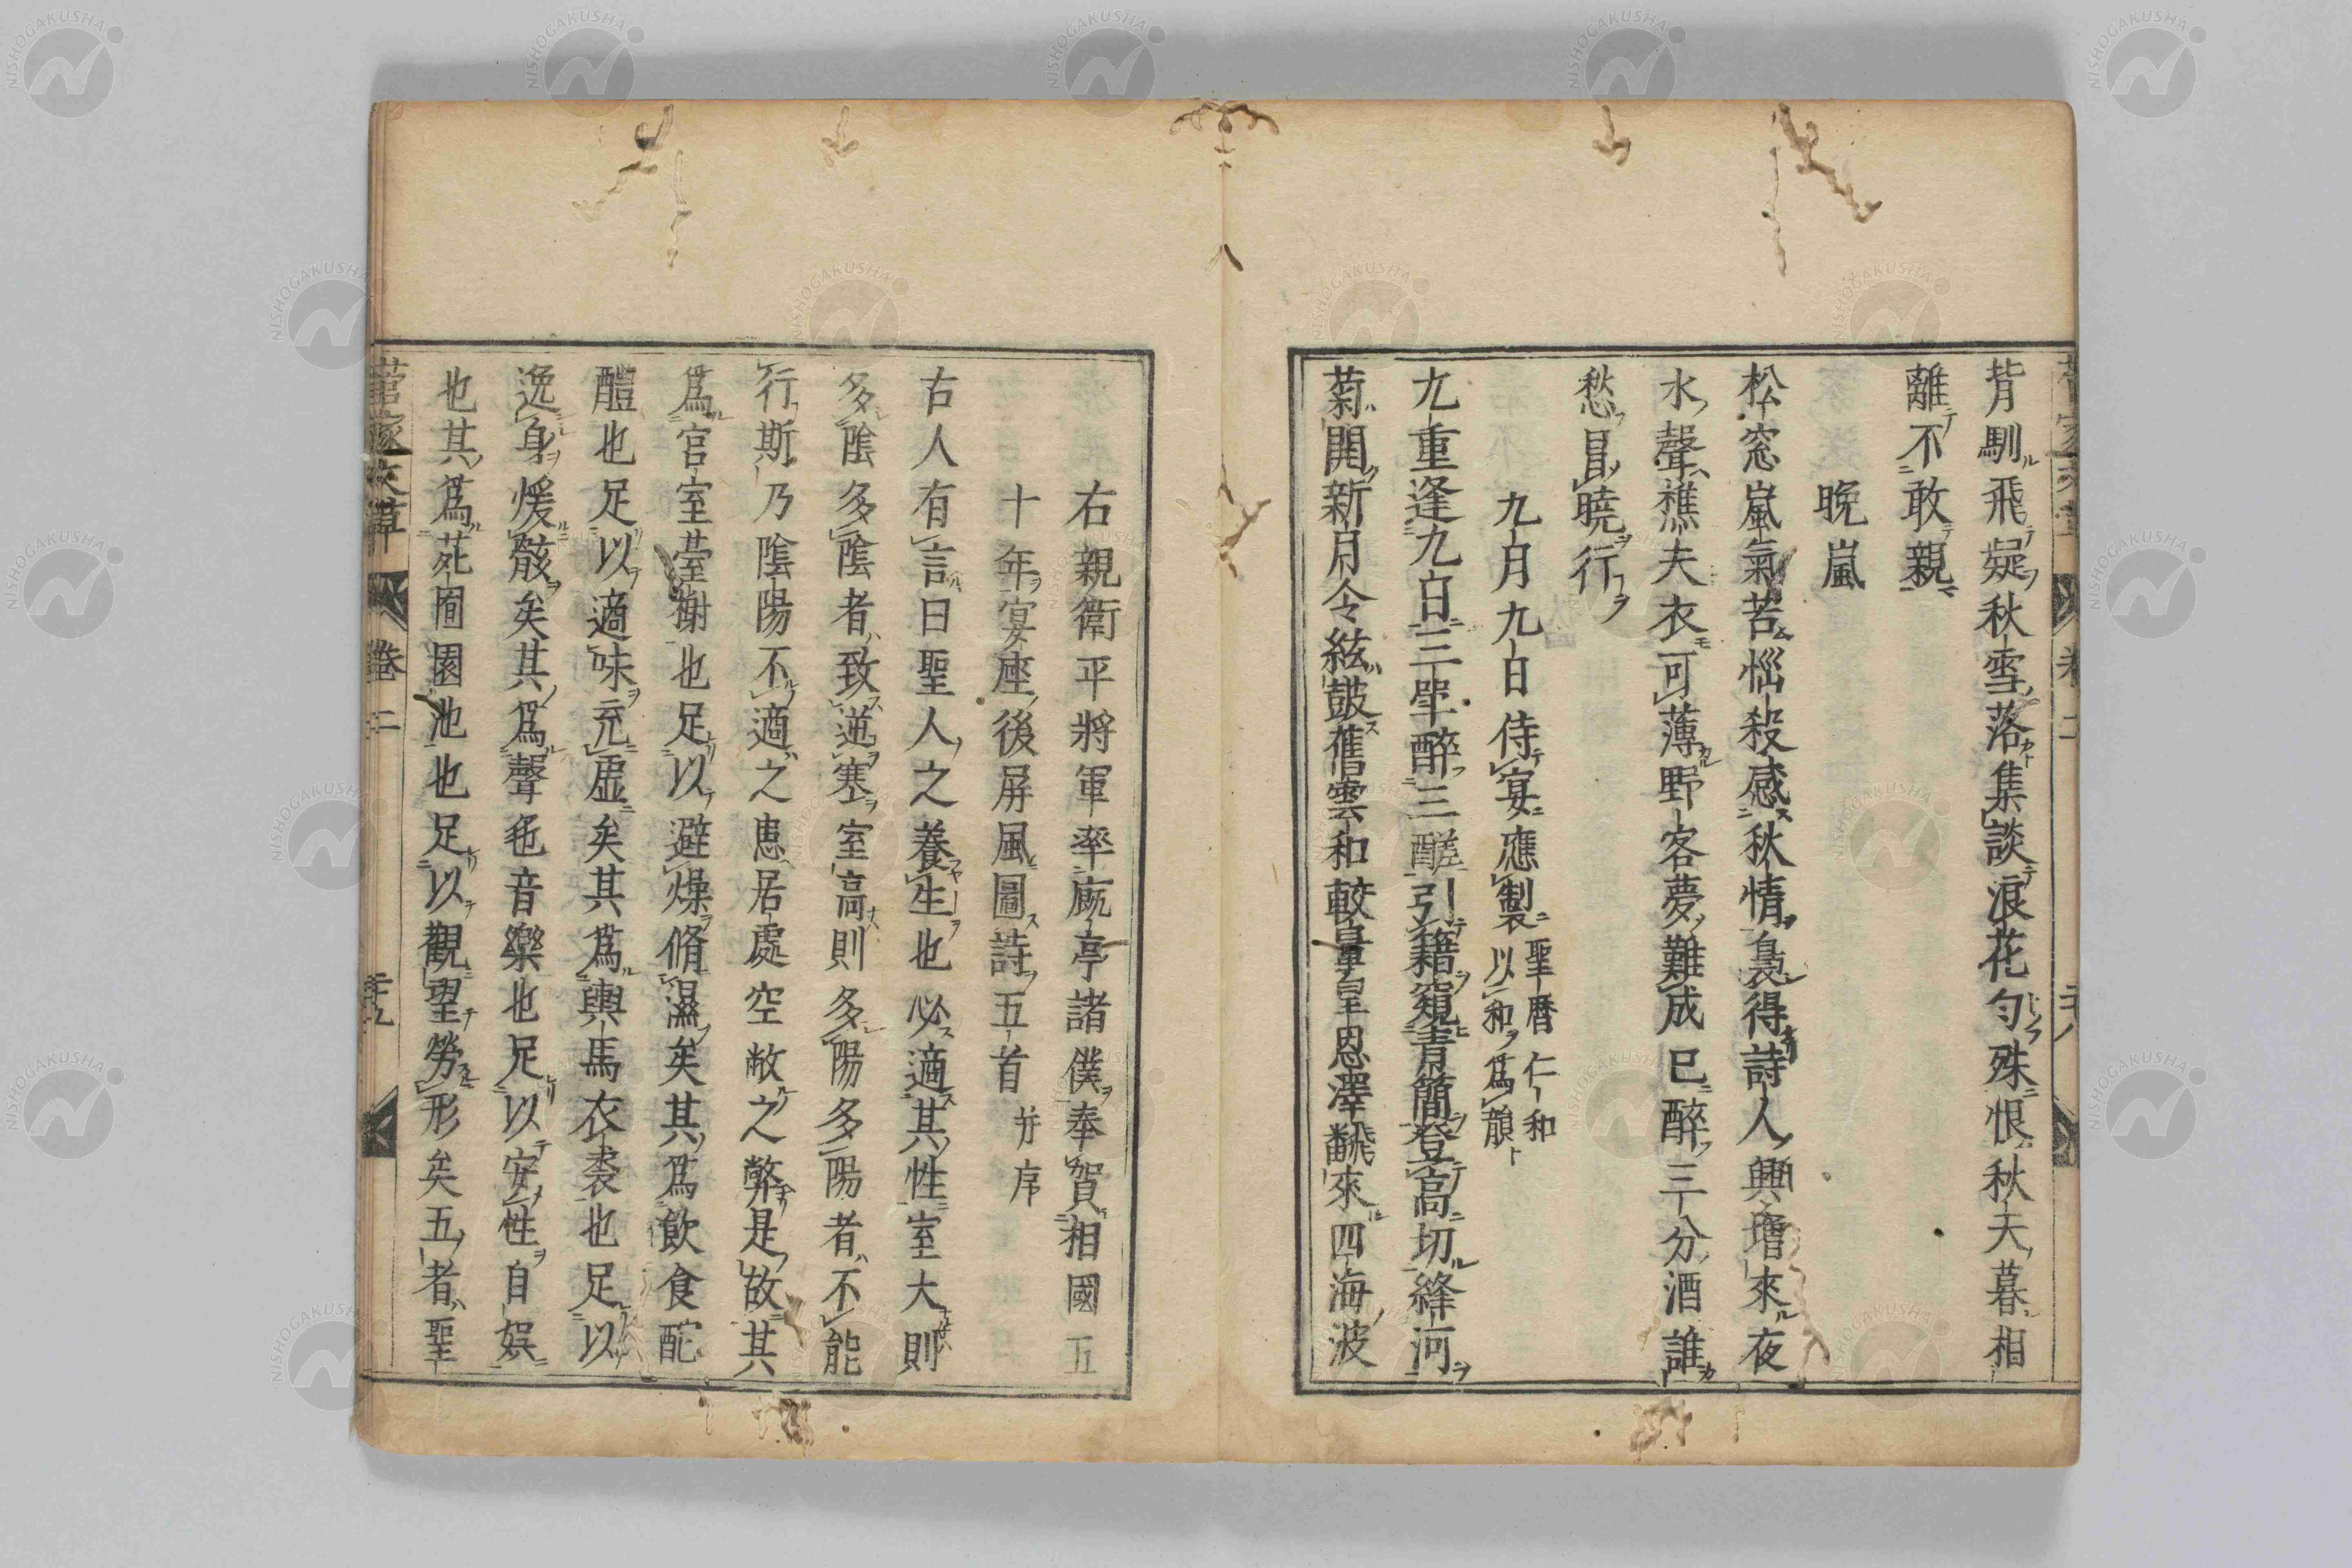 背馴飛疑秋雪落集談浪花匀殊恨秋天暮相
離不敢親
晩嵐
松窓嵐氣苦惱殺感秋情裊得詩人興瑃來夜
水聲樵夫衣可薄野客夢難成已醉三分酒誰
愁冒曉行
九月九日侍宴應製聖暦仁和
以和爲韻
九重逢九日三㔳醉三醝引籍窺青簡登高切絳河
菊開新月令絃皷舊雲和較量皇恩澤飜來四海波
右親衛平將軍率廐亭諸僕奉賀相國五
十年宴座後屏風圖詩五首并序
右人有言曰聖人之養生也必適其性室大則
多陰多陰者致逆塞室高則多陽多陽者不能
行斯乃陰陽不適之患居處空敞之弊是故其
爲宮室臺榭也足以避燥脩濕矣其爲飲食酡
醴也足以適味充虛矣其爲輿馬衣裘也足以
逸身煖骸矣其爲聲色音樂也足以安性自娯
也其爲苑囿園池也足以觀望勞形矣五者聖
菅家文草
卷二
菅家文草
卷二
NISHOGAKUSHA